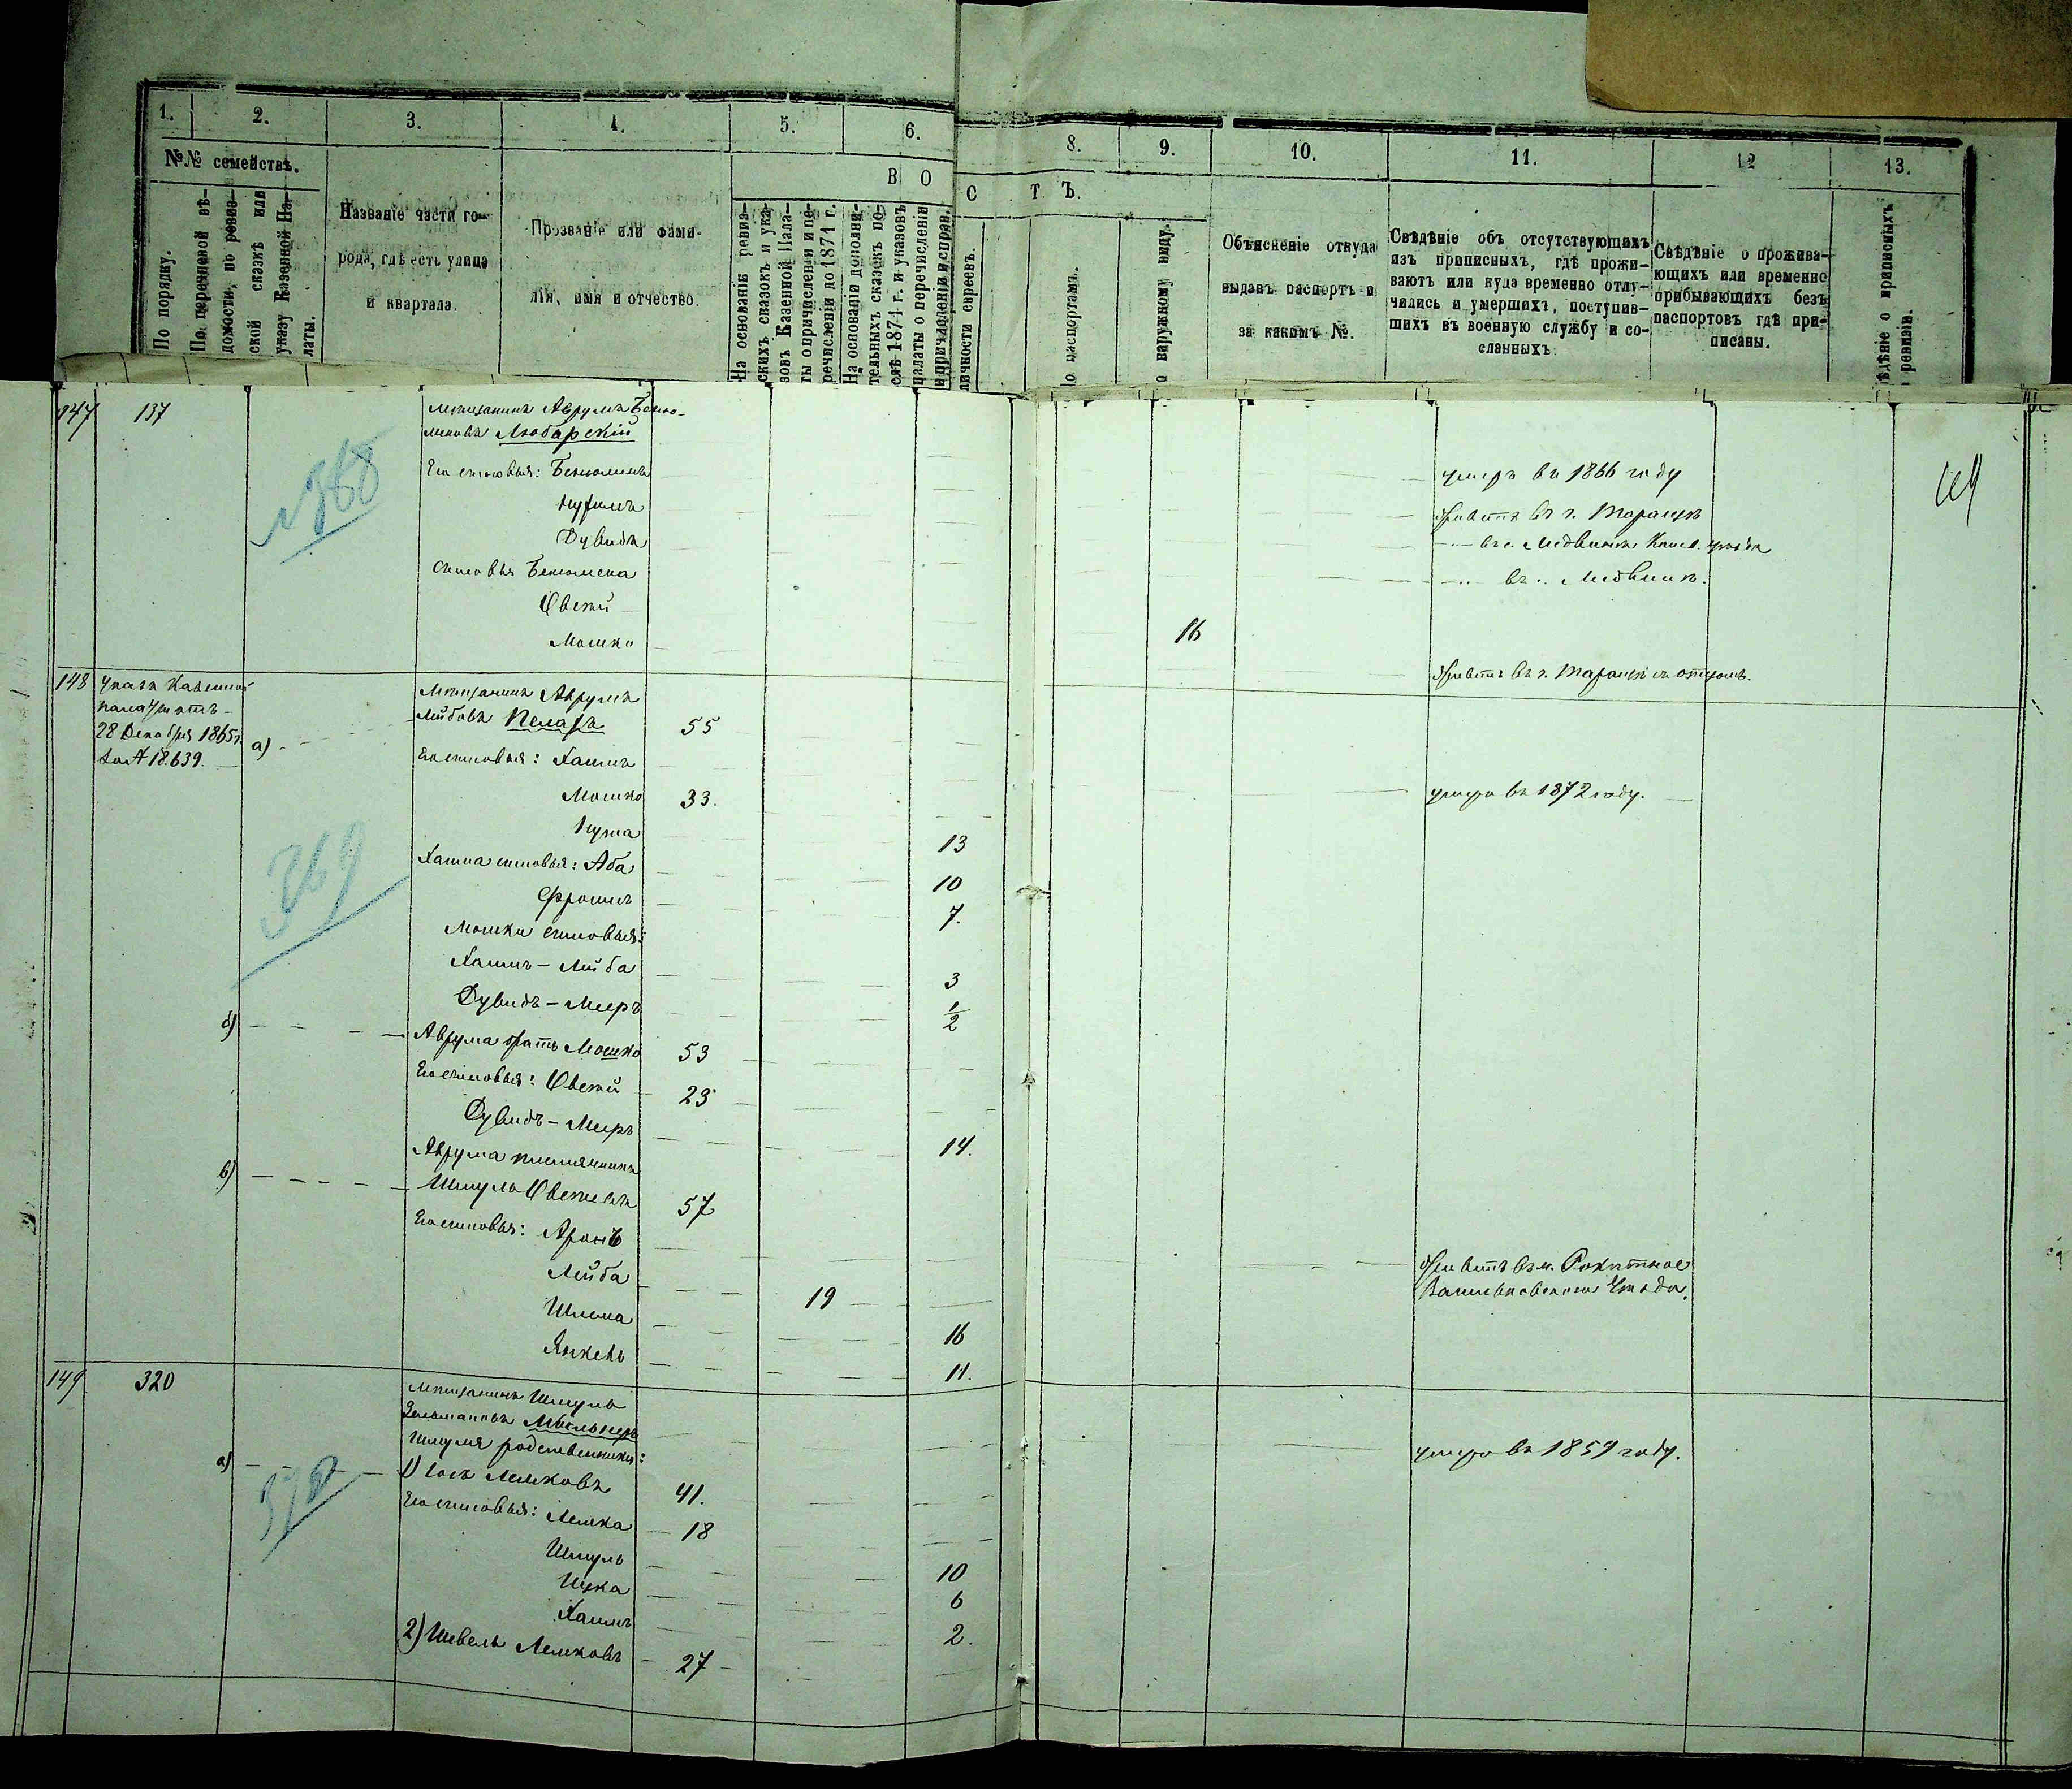 1.
2.
3.
4.
5.
6.
8.
9.
10.
11.
12
13.
№№ семействъ.
В О
С Т Ъ.
По порядку.
По перечневой вѣ-
домости, по ревиз-
ской сказкѣ или
указу Казенной Па-
латы.
Названіе части го-
рода, гдѣ есть улица
и квартала.
Прозваніе или фами-
лія, имя и отчество.
На основаніи ревиз-
скихъ сказокъ и ука-
зовъ Казенной Пала-
ты о причисленіи и пе-
речисленіи до 1874 г.
На основаніи дополни-
тельныхъ сказокъ по-
слѣ 1874 г. и указовъ
палаты о перечисленіи
и причисленіи и справ.
личности евреевъ.
о паспортамъ.
о наружному виду.
Объясненіе откуда
выданъ паспортъ и
за какимъ №.
Свѣдѣніе объ отсутствующихъ
изъ приписныхъ, гдѣ прожи-
ваютъ или куда временно отлу-
чились и умершихъ, поступив-
шихъ въ военную службу и со-
сланныхъ.
Свѣдѣніе о прожива-
ющихъ или временно
прибывающихъ безъ
паспортовъ гдѣ при-
писаны.
ѣдѣніе о приписныхъ
ревизіи.
147 137 Мѣщанинъ Аврумъ Беню-
миновъ Любарскій
368
Его сыновья: Бенюминъ умеръ въ 1866 году
Нухимъ живетъ въ г. Таращѣ
Дувидъ
сыновья Бенюмена
Овсей
Мошко 16
живетъ въ г. Таращѣ съ отцомъ.
148 Указъ Казенной
палаты отъ
28 Декабря 1865 г.
за № 18.639.
а) Мѣщанинъ Аврумъ
Лейбовъ 55
Его сыновья: Хаимъ умеръ въ 1872 году.
Мошко 33.
13
369
Хаима сыновья: Аба 10
Фроимъ 7.
Мошки сыновья:
Хаимъ-Лейба 3
Дувидъ-Меиръ 1/2
б) Аврума братъ Мошко 53
Его сыновья: Овсей 23
Дувидъ-Меиръ 14.
в) Аврума племянникъ
Шмуль Овсеевъ 57
Его сыновья: Аронъ живетъ въ м. Рокитное
Васильковскаго Уѣзда.
Лейба 19
Шлема 16
Янкель 11.
149 320 Мѣщанинъ Шмуль
Зельмановъ Мельникъ умеръ въ 1859 году.
Шмуля родственники:
370
а) 1) Іось Лемковъ 41.
Его сыновья: Лемка 18
Шмуль 10
6
Хаимъ 2.
2) Шевель Лемковъ 27